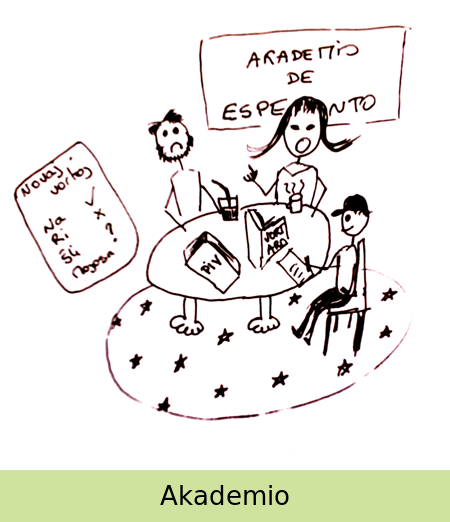 AKADEMIO
DE
ESPE NTO
Novaj
vortoj
Na ✓
Ri x
?
Mojosa
PIV
VORT
ARO
Akademio